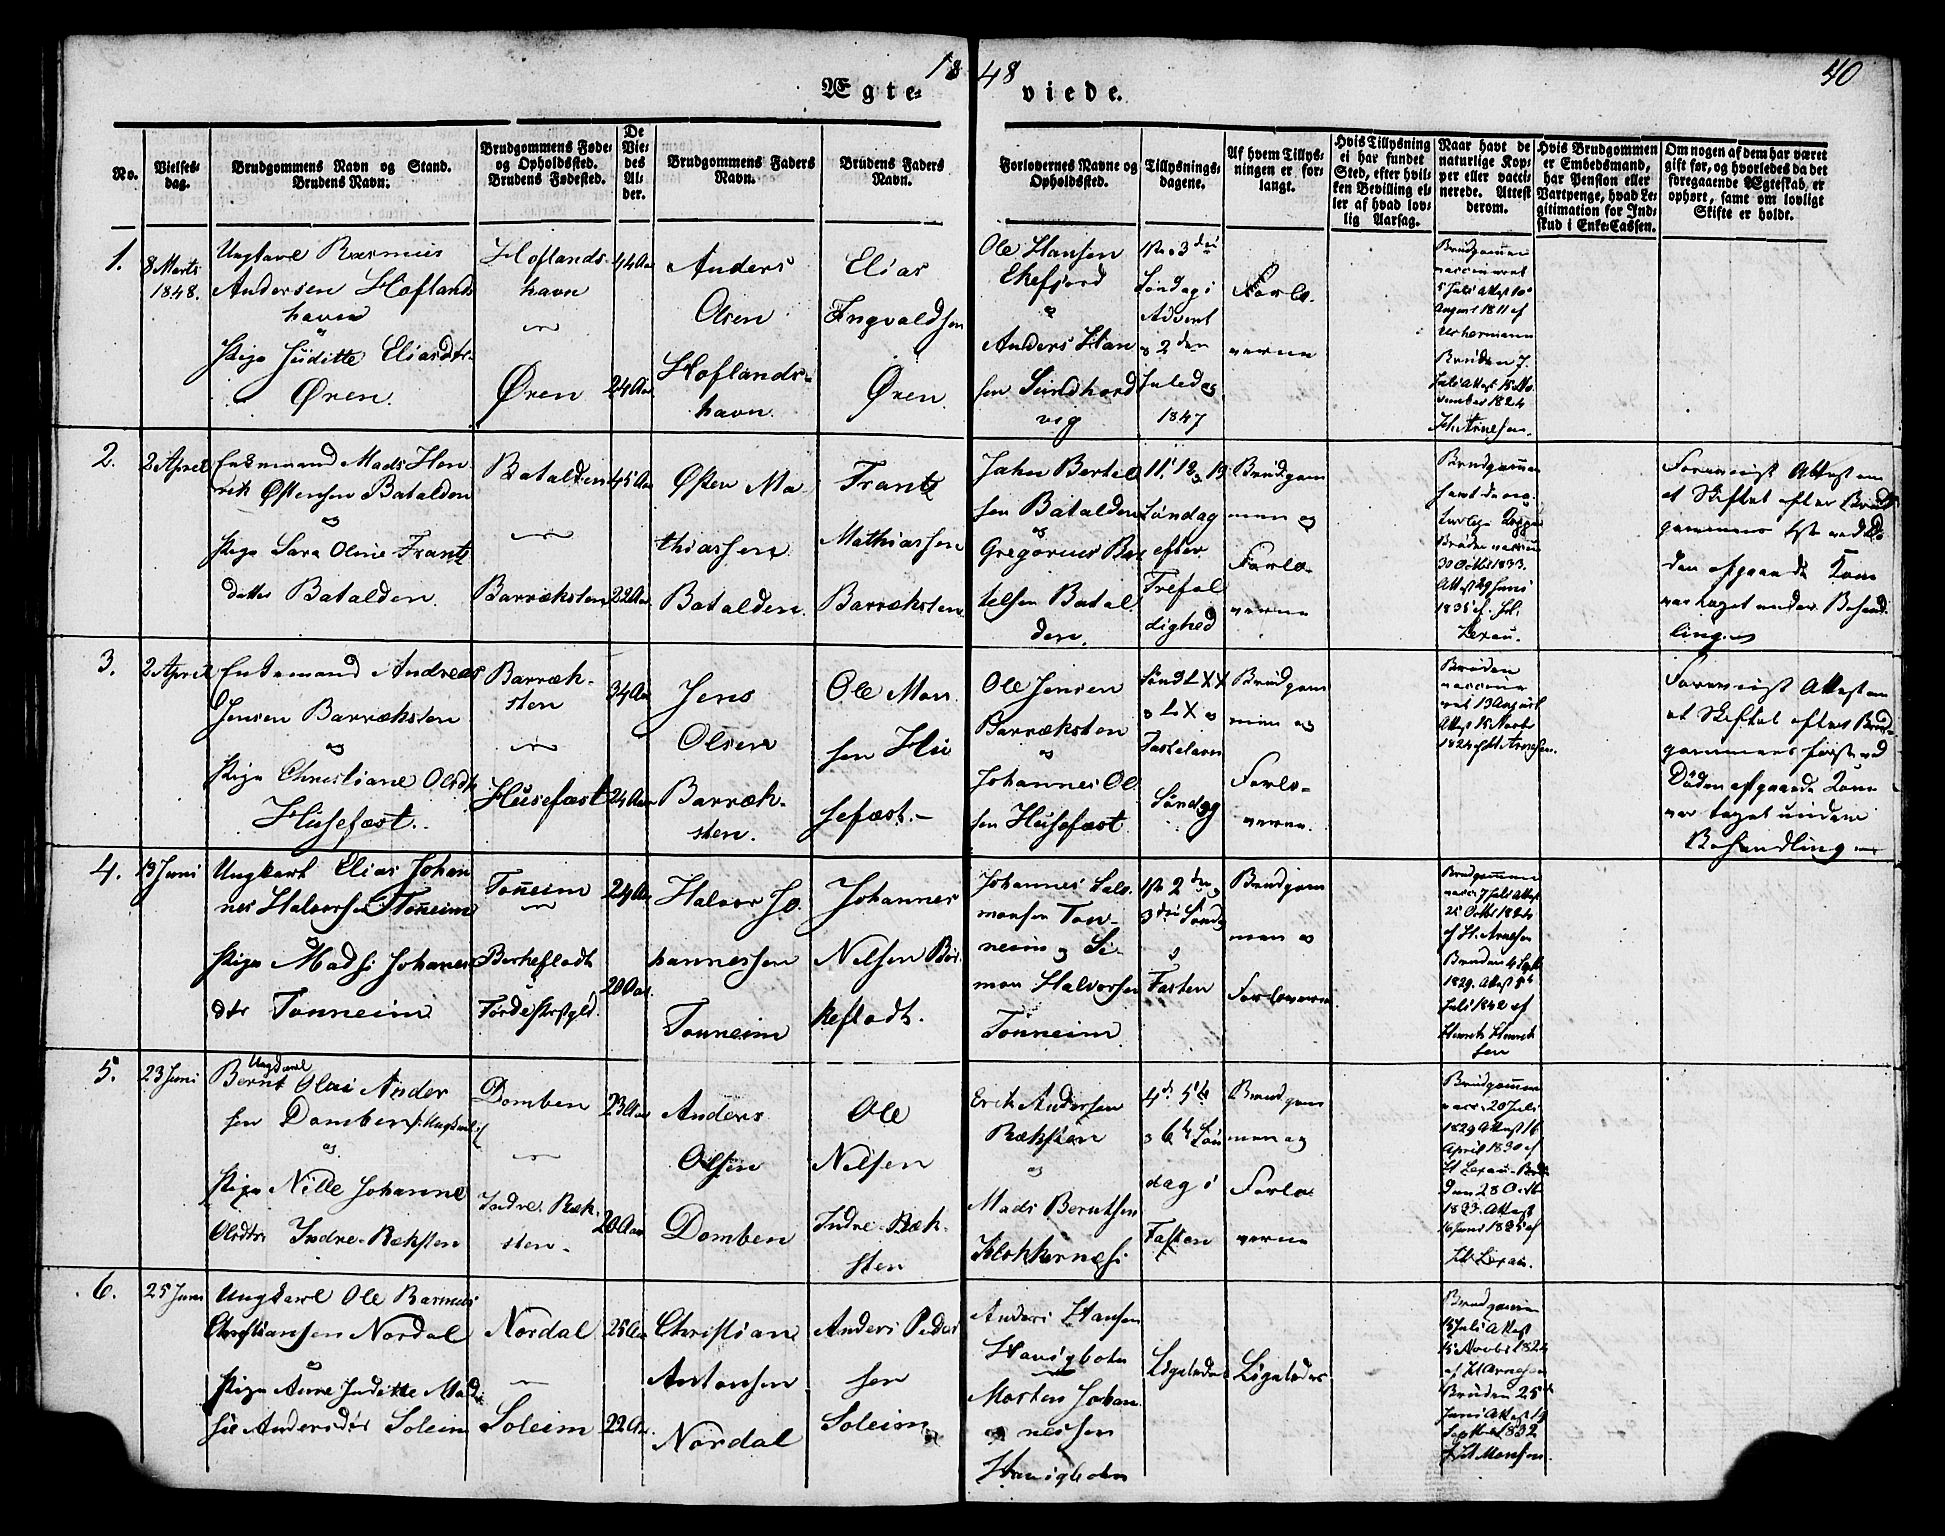 1848
40
Ægteviede.
No.
Vielses-
dag.
Brudgommens Navn og Stand.
Brudens Navn.
Brudgommens Føde-
og Opholdssted.
Brudens Fødested.
De
Vie-
des
Al-
der.
Brudgommens Faders
Navn.
Brudens Faders
Navn.
Forlovernes Navne og
Opholdssted.
Tillysnings-
dagene.
Af hvem Tillys-
ningen er for-
langt.
Hvis Tillysning
ei har fundet
Sted, efter hvil-
ken Bevilling el-
ler af hvad lov-
lig Aarsag.
Naar havt de
naturlige Kop-
per eller vacci-
nerede. Attest
derom.
Hvis Brudgommen
er Embedsmand,
har Pension eller
Vartpenge, hvad Le-
gitimation for Ind-
skud i Enke-Cassen.
Om nogen af dem har været
gift før, og hvorledes da det
foregaaende Ægteskab er
ophørt, samt om lovligt
Skifte er holdt.
1.
8 Marts
1848.
Ungkarl Rasmus
Andersen Hoflands
havn
og
Pige Juditte Eliasdtr
Øren.
Hoflands-
havn
Øren
44 Aar
24 Aar
Anders
Olsen
Hoflands-
havn
Elias
Ingvaldsen
Øren.
Ole Hansen
Ekefjord
og
Anders Han
sen Sundhord
vig
1ste 3die
Søndag i
Advent
og 2den
Juledag
1847
Forlo-
verne
Brudgommen
vaccineret
5 Juli Attest 10
August 1811 af
Brüden 7
Juli Attest 15 No
vember 1824
Ht. Arnesen.
2.
2 April
Enkemand Mads Hen
rik Østensen Batalden
og
Pige Sara Oline Frants
datter Batalden.
Batalden
Barrøksten
45 Aar
22 Aar
Østen Ma-
thiassen
Batalden.
Frants
Mathiassen
Barrøksten
Jahn Bertel
sen Batalden
og
Gregorius Ber
telsen Batal
den.
11, 12 og 13
Søndag
efter
Trefol
dighed
Brudgom
men og
Forlo-
verne
Brudgommen
havt de na-
turlige Kopper
Brüden vaccin
30 Octbr 1833.
Attest 29 Juni
1835 af Ht.
Lexau.
Foreviist Attest om
at Skiftet efter Brud
gommens 1ste ved Dø
den afgaaede Kone
var taget under Behand
ling.
3.
2 April
Enkemand Andreas
Jensen Barrøksten
og
Pige Christiane Olsdtr
Husefæst.
Barrøk-
sten
Husefæst
34 Aar
24 Aar
Jens
Olsen
Barrøk-
sten.
Ole Mon
sen Hu
sefæst.
Ole Jensen
Barrøksten
og
Johannes Ol
sen Husefæst
Sønd LXX
og LX og
Fastelavn
Søndag
Brudgom
men og
Forlo-
verne.
Brüden
vaccine
ret 13 August
Attest 15 Novbr
1824 af Ht Arnesen.
Foreviist Attest om
at Skiftet efter Brud-
gommens første ved
Døden afgaaede Kone
var taget under
Behandling
4.
19 Juni
Ungkarl Elias Johan
nes Halvorsen Tonneim
Pige Madsi Johannes
dtr Tonneim
Tonneim
Berkeflodt
Førde Præstgld.
24 Aar
20 Aar
Halvor Jo
hannessen
Tonneim
Johannes
Nilsen Ber
keflodt.
Johannes Salo
monsen Ton-
neim og Si-
mon Halvorsen
Tonneim
1ste 2den og
3die Sønd
i
Fasten
Brudgom
men og
Forloverne
Brudgommen
vacc. 7 Juli Attest
25 Octbr 1824
af Ht. Arnesen
Brüden 4 Sept
1829. Attest 5te
Juli 1842 af
Henrik Henrik
sen
5.
23 Juni
Ungkarl
Bernt Olai Ander
sen Domben /: Ungkarl :/
og
Pige Nille Johanne
Olsdtr Indre-Røksten
Domben
Indre Røk-
sten.
23 Aar
20 Aar
Anders
Olsen
Domben
Ole
Nilsen
Indre-Røk-
sten
Erik Andersen
Røksten
og
Mads Berntsen
Klokkernæs
4de 5te
og 6te Søn
dag i
Fasten
Brudgom
men og
Forlo-
verne
Brudgommen
vacc. 20 Juli
1829 Attest 16
April 1830 af
Ht Lexau - Bru
den 28 Octb
1823. Attest
16 Juni 1825 af
Ht Lexau.
6.
25 Juni
Ungkarl Ole Rasmus
Christiansen Nordal
og
Pige Anne Juditte Mad
sie Andersdtr Soleim
Nordal
Soleim
25 Aar
22 Aar
Christian
Antonsen
Nordal
Anders Peder
sen
Soleim
Anders Hansen
Havigbotn
Morten Johan
nessen
Havigbotn
Ligeledes
Ligeledes
Brudgommen
15 Juli Attest
15 Novbr 1824
af Ht Arnesen
Brüden 25de
Juni Attest 14
Septbr 1832
af Ht Monsen.